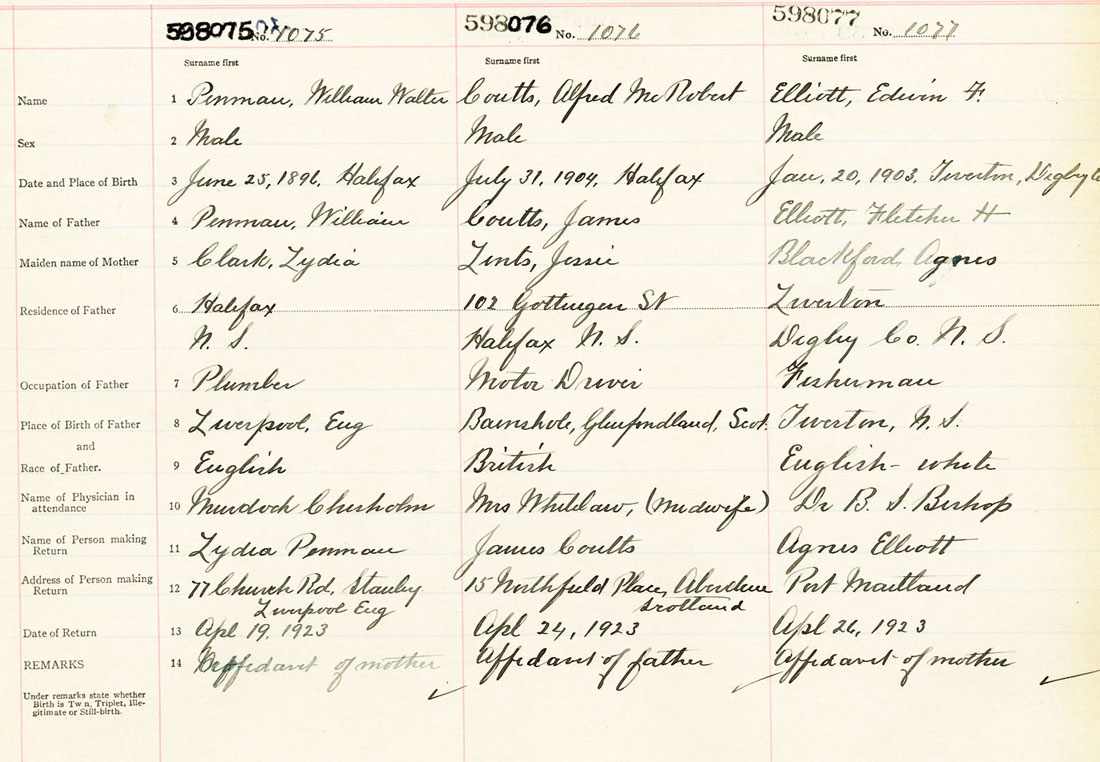 598075 No. 1075 598076 No. 1076 598077 No. 1077
Surname first Surname first Surname first
Name 1 Penman, William Walter Coutts, Alfred McRobert Elliott, Edwin F.
Sex 2 Male Male Male
Date and Place of Birth 3 June 25, 1896, Halifax July 31, 1904, Halifax Jan. 20, 1903, Tiverton, Digby Co
Name of Father 4 Penman, William Coutts, James Elliott, Fletcher H
Maiden name of Mother 5 Clark, Lydia Jessie Blackford, Agnes
Residence of Father 6 Halifax 102 Gottingen St Tiverton
N. S. Halifax N. S. Digby Co. N. S.
Occupation of Father 7 Plumber Motor Driver Fisherman
Place of Birth of Father 8 Liverpool, Eng Scot. Tiverton, N. S.
and
Race of Father. 9 English British English - white
Name of Physician in
attendance 10 Murdoch Chisholm Mrs Whitelaw, (Midwife) Dr B. S. Bishop
Name of Person making
Return 11 Lydia Penman James Coutts Agnes Elliott
Address of Person making
Return 12 77 Church Rd, Stanley 15 Northfield Place, Aberdeen Port Maitland
Liverpool Eng Scotland
Date of Return 13 Apl 19, 1923 Apl 24, 1923 Apl 26, 1923
REMARKS 14 Affidavit of mother Affidavit of father Affidavit of mother
Under remarks state whether
Birth is Tw n, Triplet, Ille-
gitimate or Still-birth.